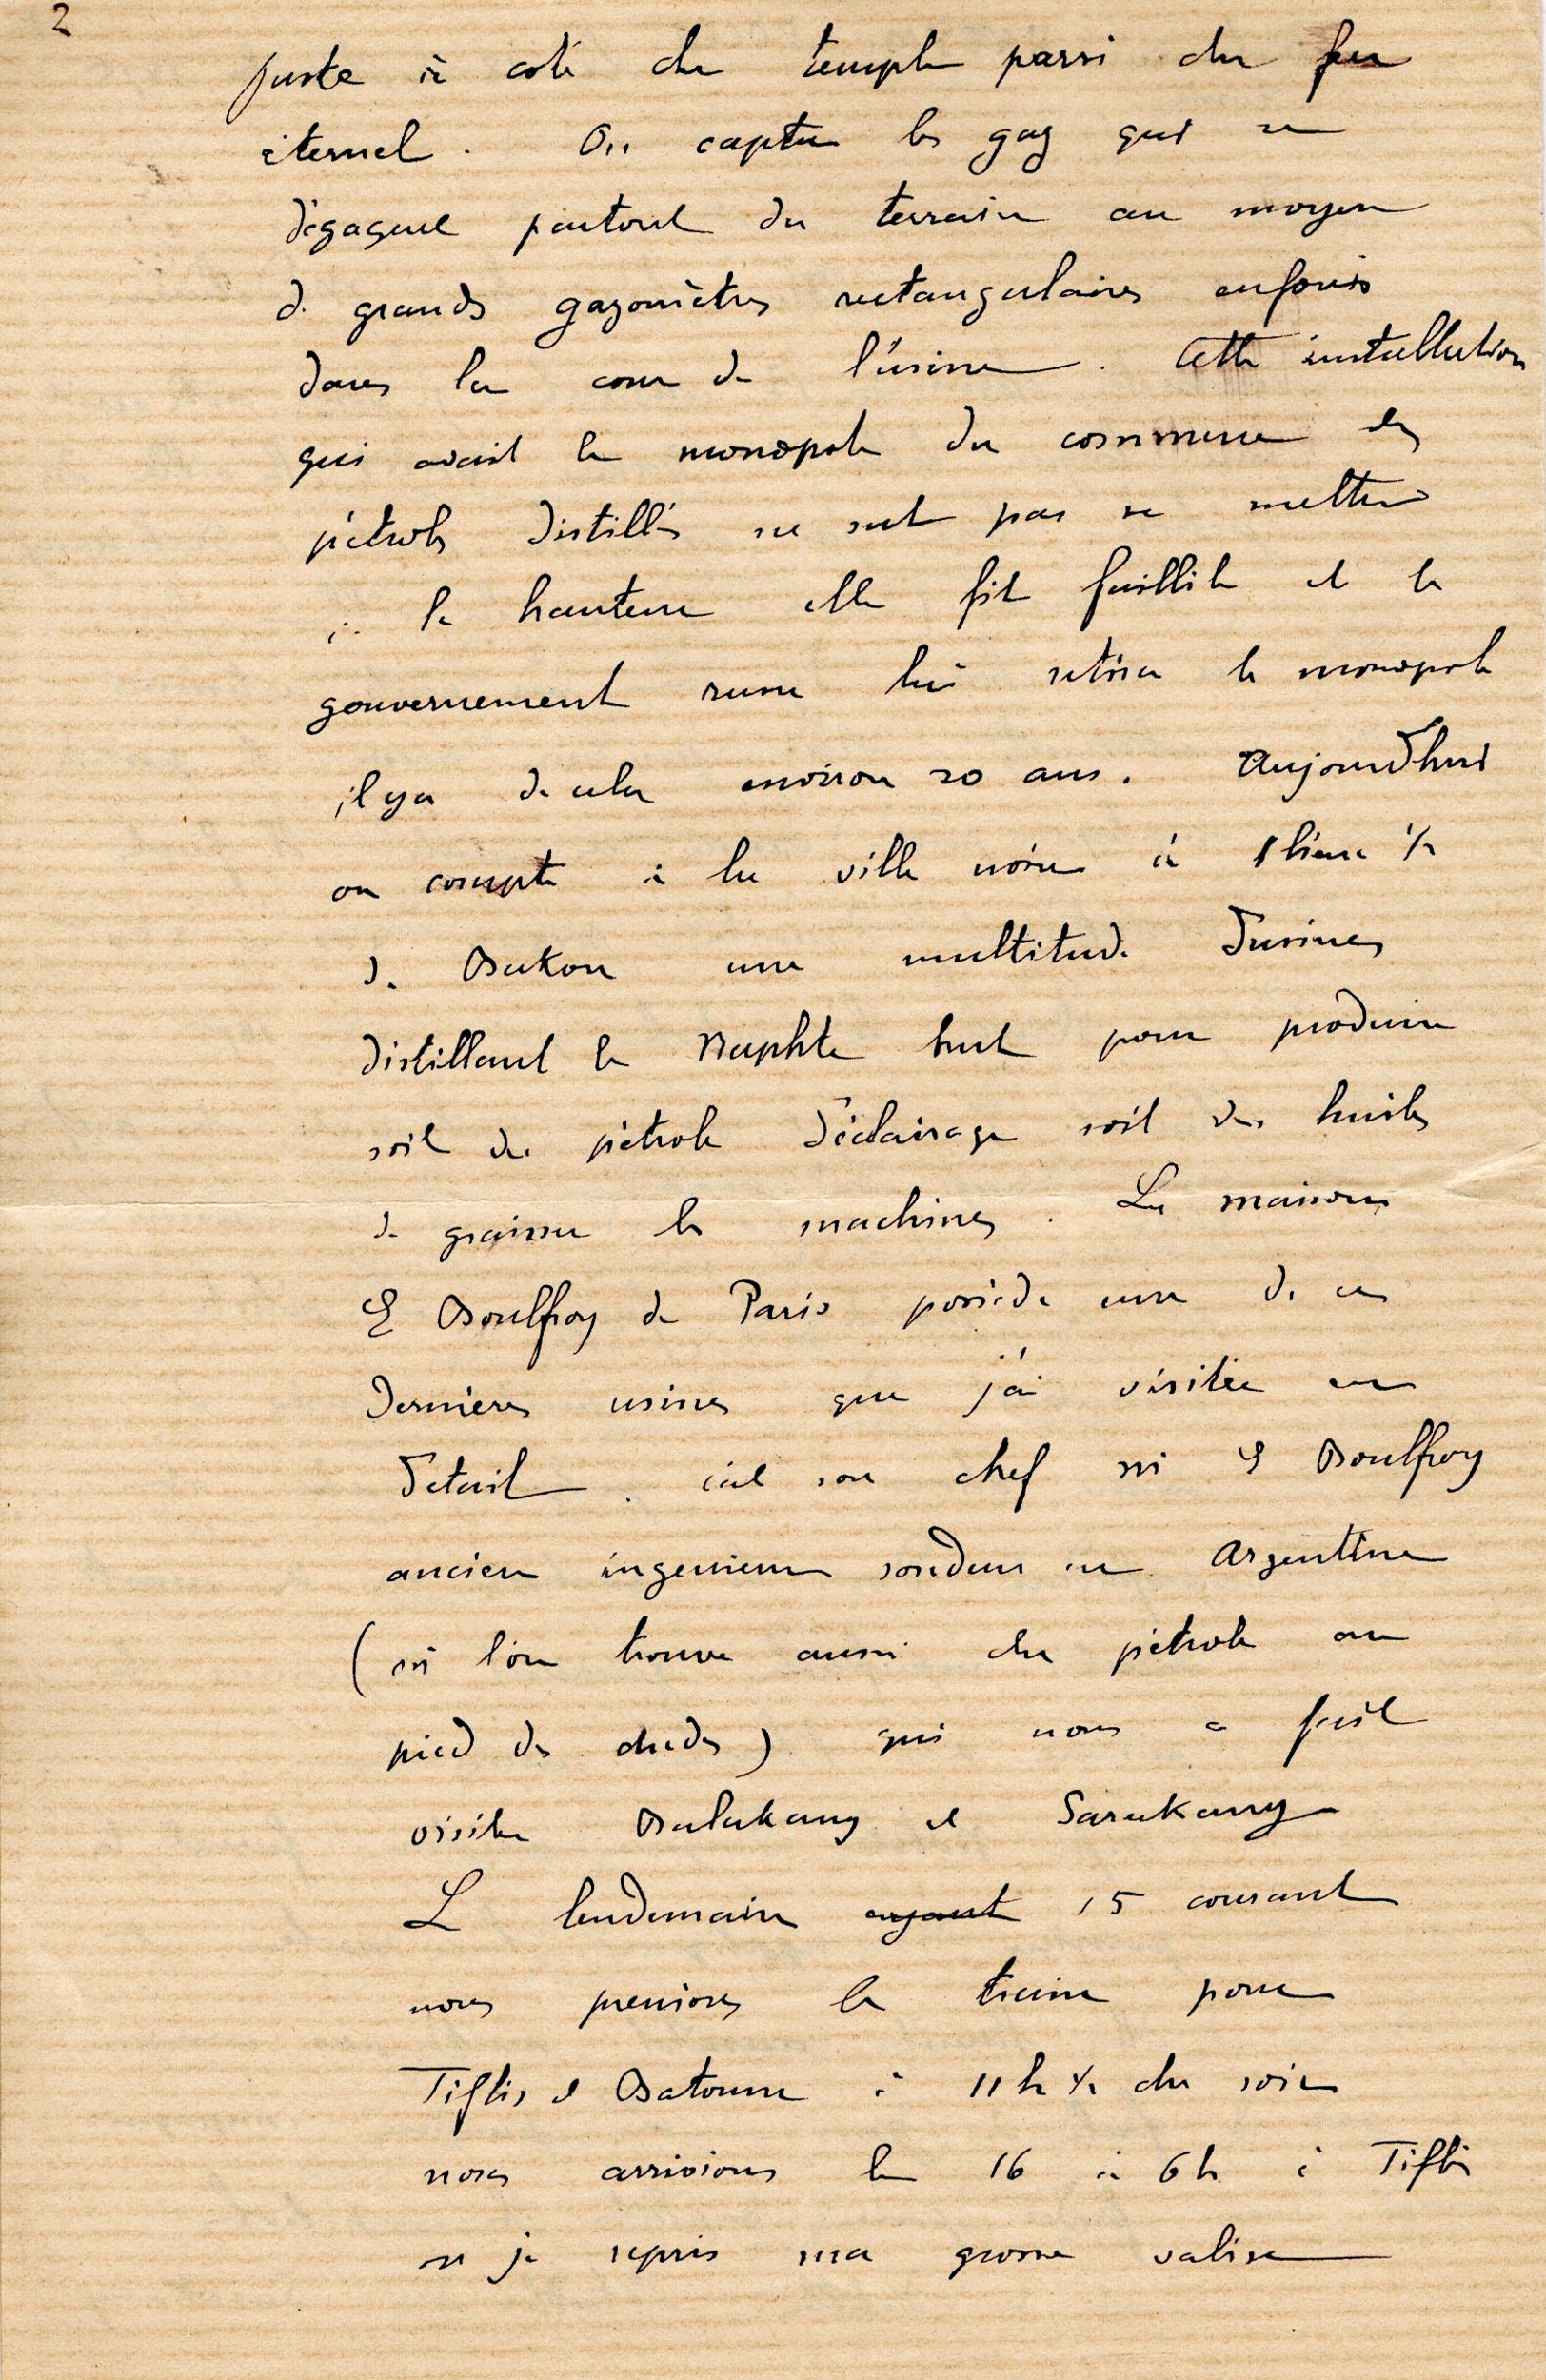 2
juste à coté du temple parsi du feu
éternel. On capte les gaz qui se
dégagent partout du terrain au moyen
de grands gazomètres rectangulaires enfouis
dans la cour de l'usine. Cette installation
qui avait le monopole du commerce des
pétroles distillés ne sut pas se mettre
à la hauteur elle fit faillite et le
gouvernement russe lui retira le monopole
il y a de cela environ 20 ans. Aujourd'hui
on compte à la ville noire à 1 lieue ½
de Bakou une multitude d'usines
distillant le Naphte brut pour produire
soit du pétrole d'éclairage soit des huiles
de graisser les machines. La maison
E Boulfroy de Paris possède une de ces
dernières usines que j'ai visitée en
détail. c'est son chef mr E Boulfroy
ancien ingenieur sondeur en Argentine
(où l'on trouve aussi du pétrole au
pied des Andes) qui nous a fait
visiter Balakany et Sarakany
Le lendemain 15 courant
nous prenions le train pour
Tiflis et Batoum à 11 h ½ du soir
nous arrivions le 16 à 6 h à Tiflis
où je repris ma grosse valise